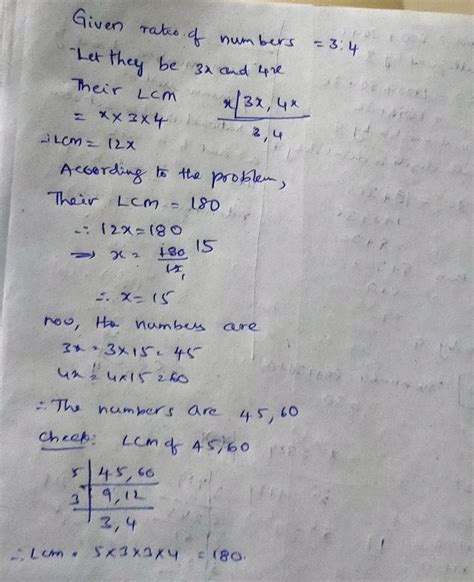 Given ratio of numbers = 3:4
Let they be 3x and 4x
Their LCM x | 3x, 4x
= x × 3 × 4 3, 4
∴ LCM = 12x
According to the problem,
Their LCM = 180
∴ 12x = 180
⇒ x = 180/12 15
∴ x = 15
now, the numbers are
3x = 3×15 = 45
4x = 4×15 = 60
∴ The numbers are 45, 60
Check: LCM of 45, 60
5 | 45, 60
3 | 9, 12
3, 4
∴ LCM = 5×3×3×4 = 180.